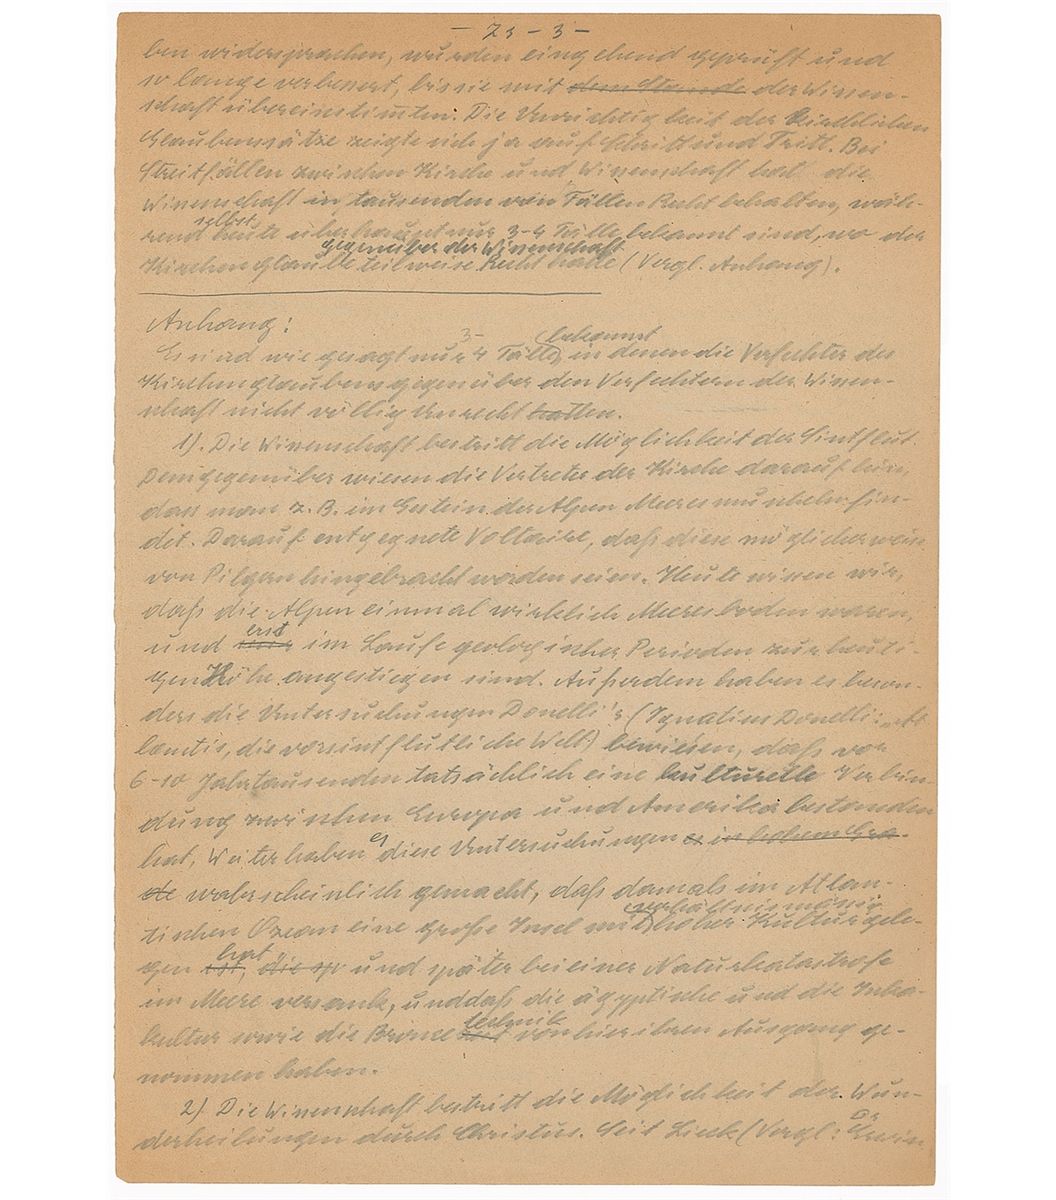 - 23 - 3 -
ben widersprachen, wurden eingehend geprüft und
so lange verbessert, bis sie mit dem Stande der Wissen-
schaft übereinstimten. Die Unrichtigkeit der kirchlichen
Glaubenssätze zeigte sich ja auf Schritt und Tritt. Bei
Streitfällen zwischen Kirche und Wissenschaft hat die
Wissenschaft in tausenden von Fällen Recht behalten, wäh-
selbst
rend heute überhaupt nur 3-4 Fälle bekannt sind, wo der
gegenüber der Wissenschaft
Kirchenglaube teilweise Recht hatte (Vergl. Anhang).
Anhang:
3- bekannt
Es sind wie gesagt nur 4 Fälle, in denen die Verfechter des
Kirchenglaubens gegenüber den Verfechtern der Wissen-
schaft nicht völlig Unrecht hatten.
1). Die Wissenschaft bestritt die Möglichkeit der Sintflut.
Demgegenüber wiesen die Vertreter der Kirche darauf hin,
dass man z. B. im Gestein der Alpen Meeresmuscheln fin-
det. Darauf entgegnete Voltaire, daß diese möglicherweise
von Pilgern hingebracht worden seien. Heute wissen wir,
daß die Alpen einmal wirklich Meeresboden waren,
erst
und im Laufe geologischer Perioden zur heuti-
gen Höhe angestiegen sind. Außerdem haben es beson-
ders die Untersuchungen Donelli's (Ignatius Donelli: „At
lantis, die vorsintflutliche Welt) bewiesen, daß vor
6-10 Jahrtausenden tatsächlich eine kulturelle Verbin-
dung zwischen Europa und Amerika bestanden
hat, Weiter haben es diese Untersuchungen es in hohem Gra-
de wahrscheinlich gemacht, daß damals im Atlan-
verhältnismässig
tischen Ozean eine große Insel mit hoher Kultur gele-
hat
gen ist, die sp und später bei einer Naturkatastrofe
im Meere versank, und daß die ägyptische und die Inka-
technik
kultur sowie die Bronze von hier ihren Ausgang ge-
nommen haben.
2) Die Wissenschaft bestritt die Möglichkeit der Wun-
Dr
derheilungen durch Christus. Seit Liek (Vergl: Erwin